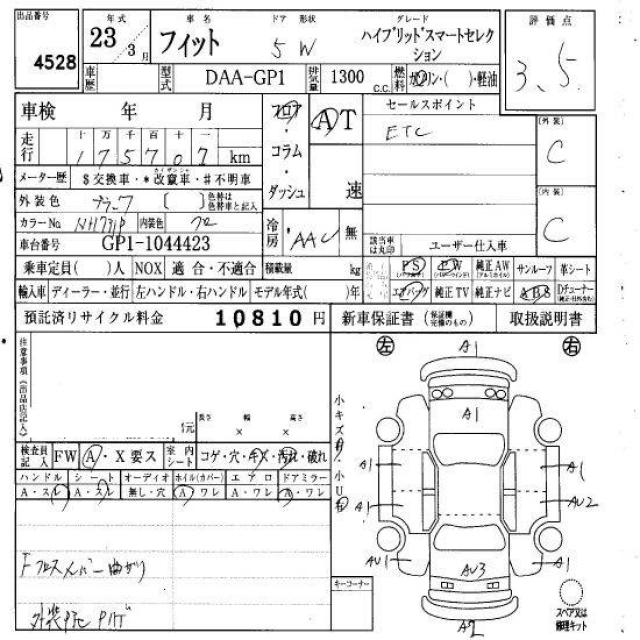 出品番号 年式 車名 ドア 形状 グレード 評価点
4528 23 3月 フィット 5 W ハイブリッドスマートセレクション 3.5
車歴 型式 DAA-GP1 排気量 1300 C.C. 燃料 ガソリン・( )・軽油
車検 年 月 フロア・コラム・ダッシュ AT 速 セールスポイント
ETC
走行 十 万 千 百 十 一
175707 km
(外装) C
メーター歴 $交換車・*改竄車・#不明車
外装色 ( ) 色替は色替車と記入
(内装) C
カラーNo NH731P 内装色 冷房 AAC 無
車台番号 GP1-1044423 該当車は丸印 ユーザー仕入車
乗車定員( )人 NOX 適合・不適合 積載量 kg PS PW 純正AW サンルーフ 革シート
輸入車 ディーラー・並行 左ハンドル・右ハンドル モデル年式( )年 エアバッグ 純正TV 純正ナビ ABS Dチューナー
預託済リサイクル料金 10810 円 新車保証書 (保証欄完備のもの) 取扱説明書
注意事項(出品店記入)
左 右
A1
A1
小キズ有
長さ 幅 高さ
× ×
検査員記入 FW A・X要ス 室内シート コゲ・穴・キズ・汚れ・破れ
A1 A1
小U有
ハンドル シート オーディオ ホイル(カバー) エアロ ドアミラー
A・スレ A・スレ 無し・穴 A ワレ A・ワレ A・ワレ
A1 AU2
AU1 A1
Fクロスメンバー曲がり
AU3
キーコーナー
スペア又は修理キット
A2